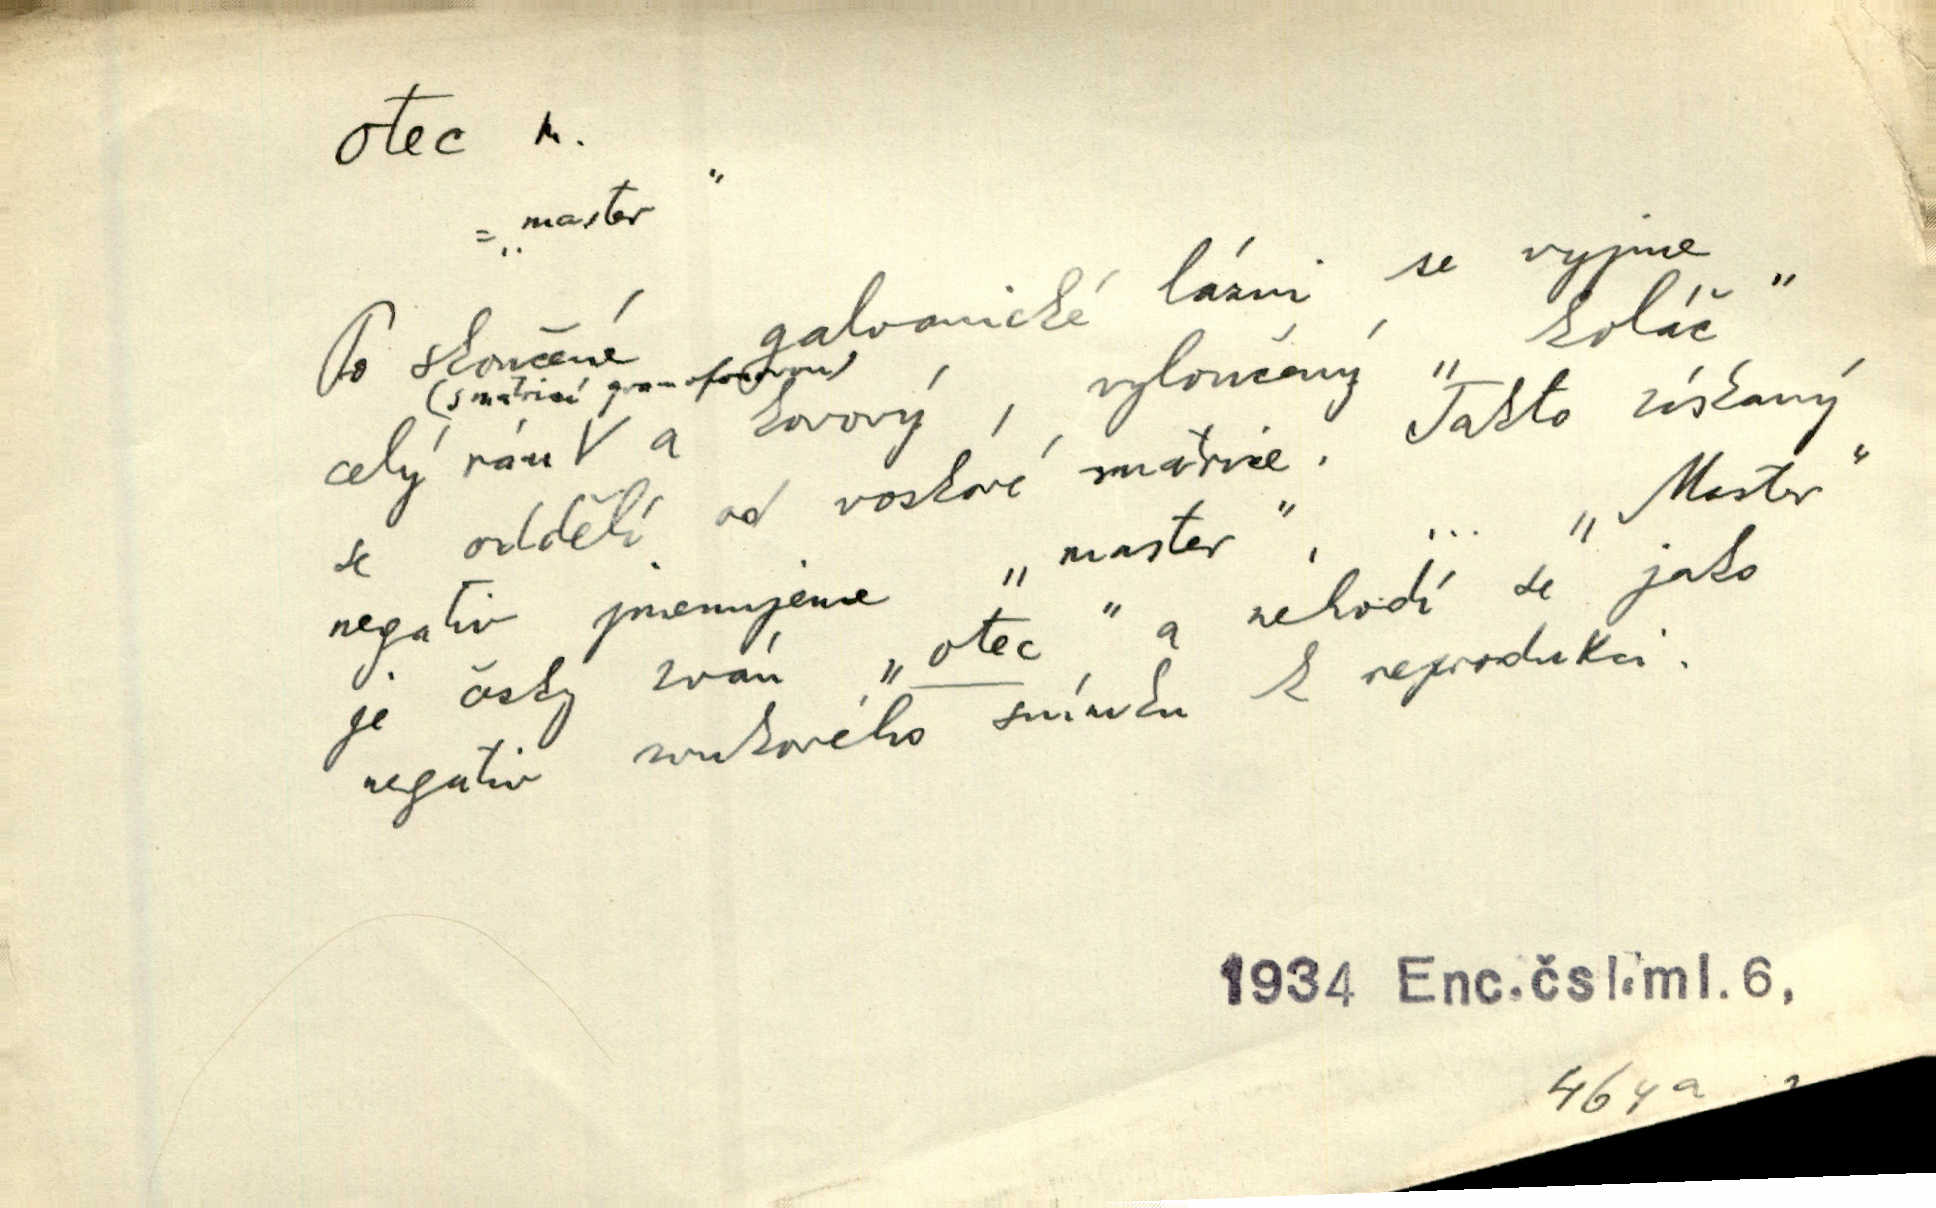 otec m.
= „master"
Po skončené galvanické lázni se vyjme
(s matricí gramofonovou)
celý rám V a kovový, vyloučený „koláč"
se oddělí od voskové matrice. Takto získaný
negativ jmenujeme „master", ... „Master"
je česky zván „otec" a nehodí se jako
negativ zvukového snímku k reprodukci.
1934 Enc.čsl.ml.6,
464a